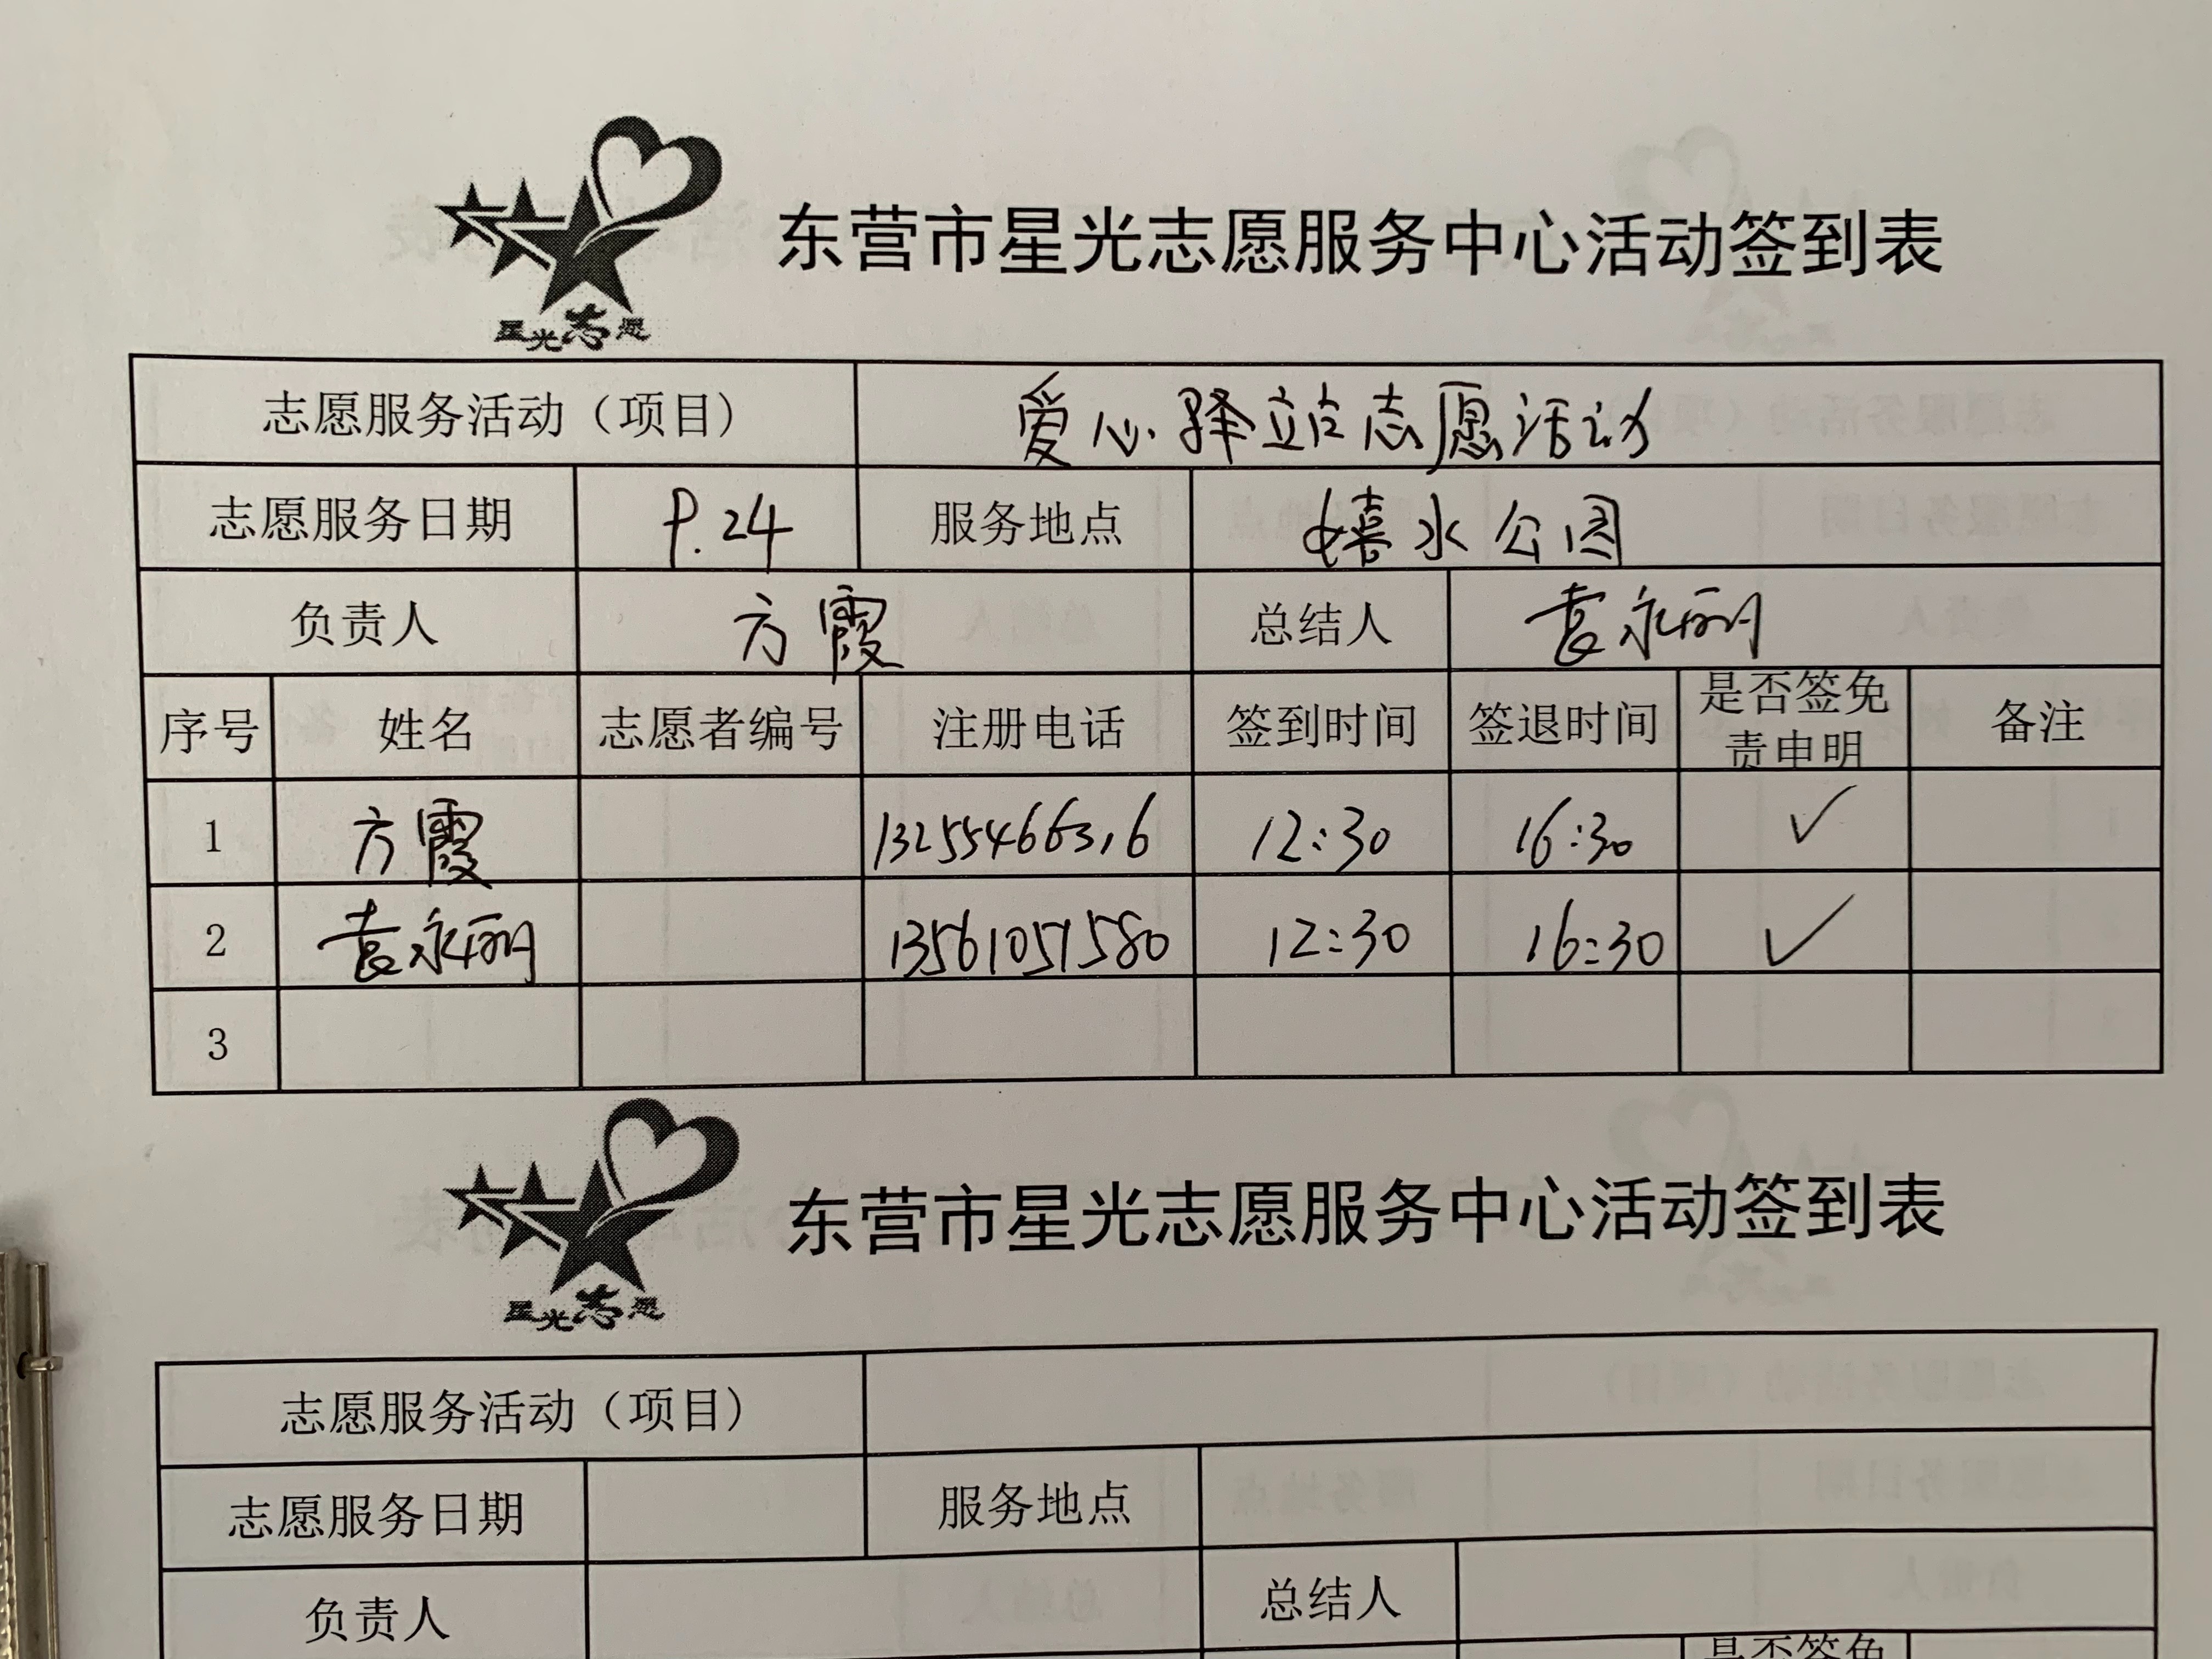 星光志愿
东营市星光志愿服务中心活动签到表
志愿服务活动（项目） 爱心驿站志愿活动
志愿服务日期 9.24 服务地点 嬉水公园
负责人 方霞 总结人 袁永丽
序号 姓名 志愿者编号 注册电话 签到时间 签退时间 是否签免责申明 备注
1 方霞 13255466316 12:30 16:30 ✓
2 袁永丽 13561051580 12:30 16:30 ✓
3
星光志愿
东营市星光志愿服务中心活动签到表
志愿服务活动（项目）
志愿服务日期 服务地点
负责人 总结人
是否签免